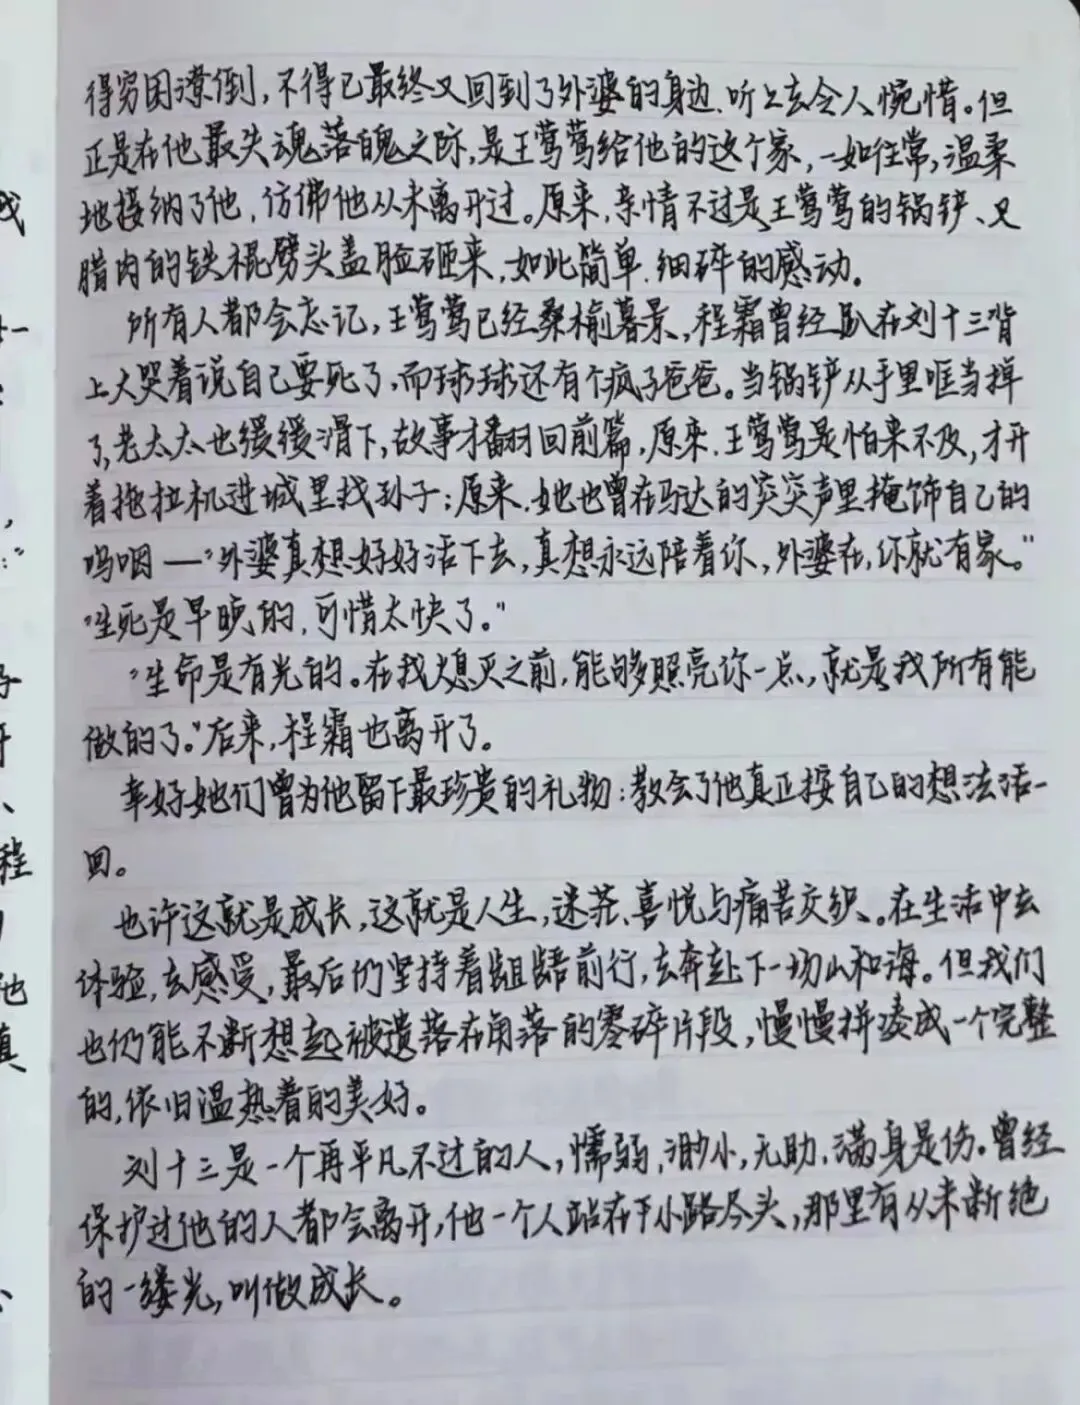 得穷困潦倒，不得已最终又回到了外婆的身边、听上去令人惋惜。但
正是在他最失魂落魄之际，是王莺莺给他的这个家，一如往常，温柔
地接纳了他，仿佛他从未离开过。原来，亲情不过是王莺莺的锅铲、又
腊肉的铁棍劈头盖脸砸来，如此简单、细碎的感动。
所有人都会忘记，王莺莺已经桑榆暮景，程霜曾经趴在刘十三背
上大哭着说自己要死了，而球球还有个疯子爸爸。当锅铲从手里哐当掉
了，老太太也缓缓滑下，故事才翻回前篇，原来，王莺莺是怕来不及，才开
着拖拉机进城里找孙子；原来，她也曾在马达的突突声里掩饰自己的
呜咽——“外婆真想好好活下去，真想永远陪着你，外婆在，你就有家。”
“生死是早晚的，可惜太快了。”
“生命是有光的。在我熄灭之前，能够照亮你一点，就是我所有能
做的了。”后来，程霜也离开了。
幸好她们曾为他留下最珍贵的礼物：教会了他真正按自己的想法活一
回。
也许这就是成长，这就是人生，迷茫、喜悦与痛苦交织。在生活中去
体验，去感受，最后仍坚持着龃龉前行，去奔赴下一场山和海。但我们
也仍能不断想起被遗落在角落的零碎片段，慢慢拼凑成一个完整
的，依旧温热着的美好。
刘十三是一个再平凡不过的人，懦弱，渺小，无助，满身是伤。曾经
保护过他的人都会离开，他一个人站在于小路尽头，那里有从未断绝
的一缕光，叫做成长。